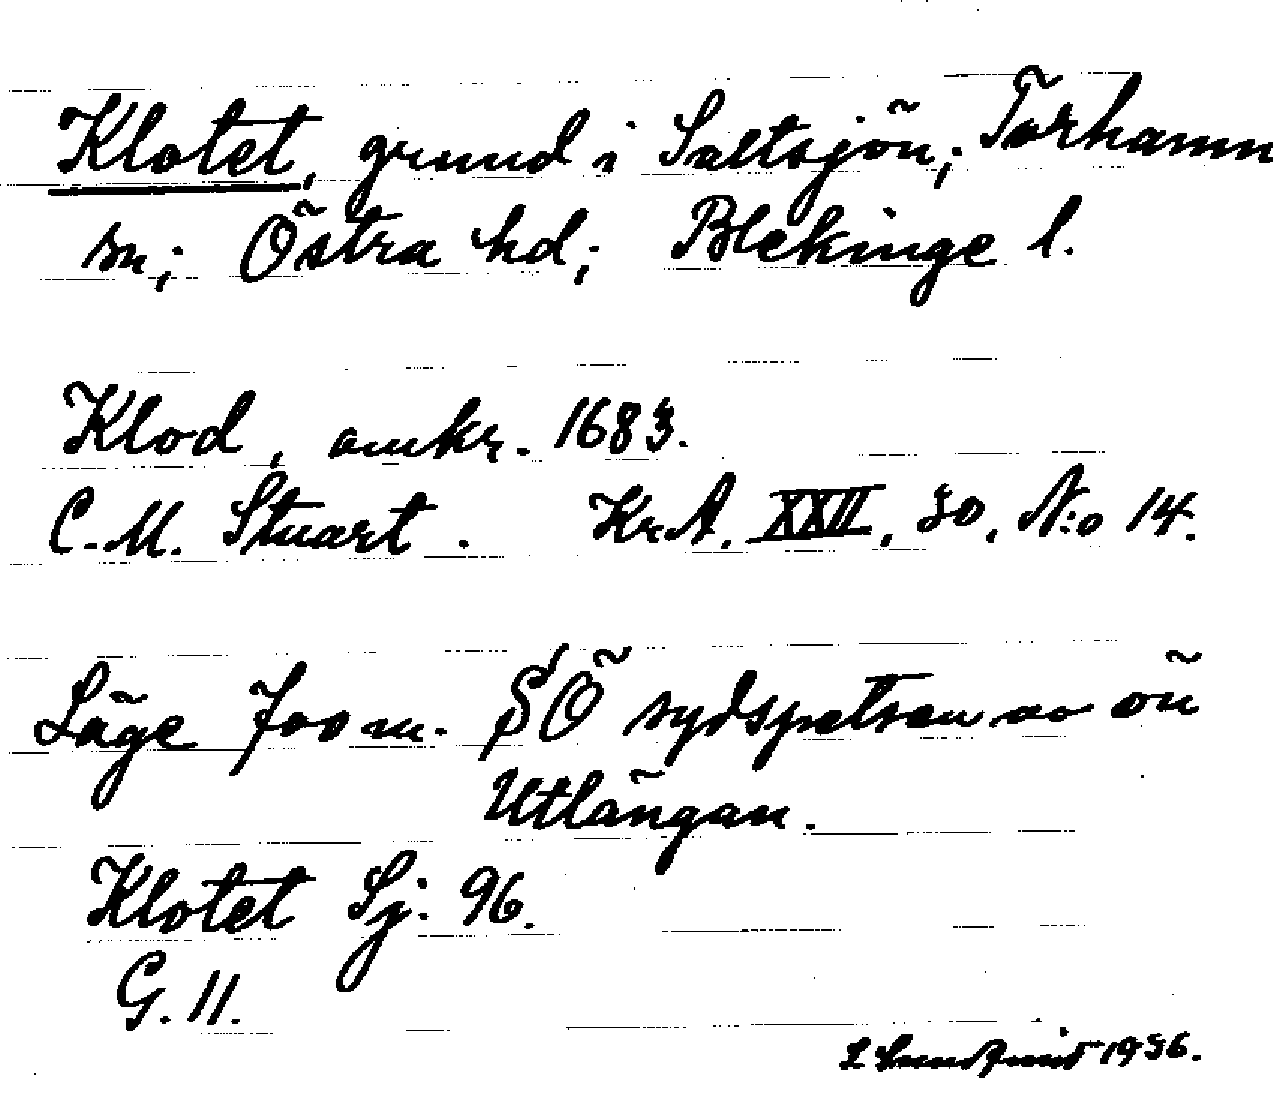 Klotet, grund i Saltsjön; Torhamn
sn; Östra hd; Blekinge l.
Klod, omkr. 1683.
C.M. Stuart. Kr.A. XXII, 30, N:o 14.
Läge 700 m. SÖ sydspetsen av ön
Utlängan.
Klotet Sj: 96.
G. 11.
1956.